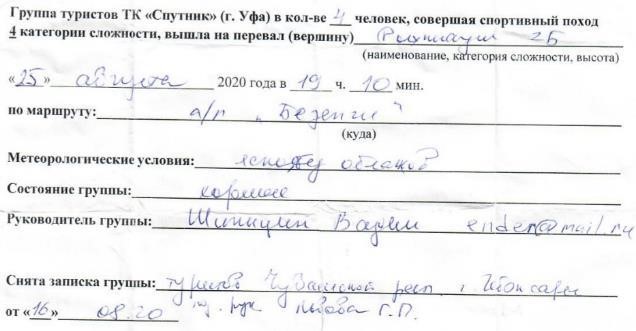 Группа туристов ТК «Спутник» (г. Уфа) в кол-ве 4 человек, совершая спортивный поход
4 категории сложности, вышла на перевал (вершину) 2Б
(наименование, категория сложности, высота)
«25» августа 2020 года в 19 ч. 10 мин.
по маршруту: а/л "Безенги"
(куда)
Метеорологические условия: облаков
Состояние группы:
Руководитель группы: Вадим ender@mail.ru
Снята записка группы: туристов Чувашской респ.
от «16» 08.20 рук Г.П.